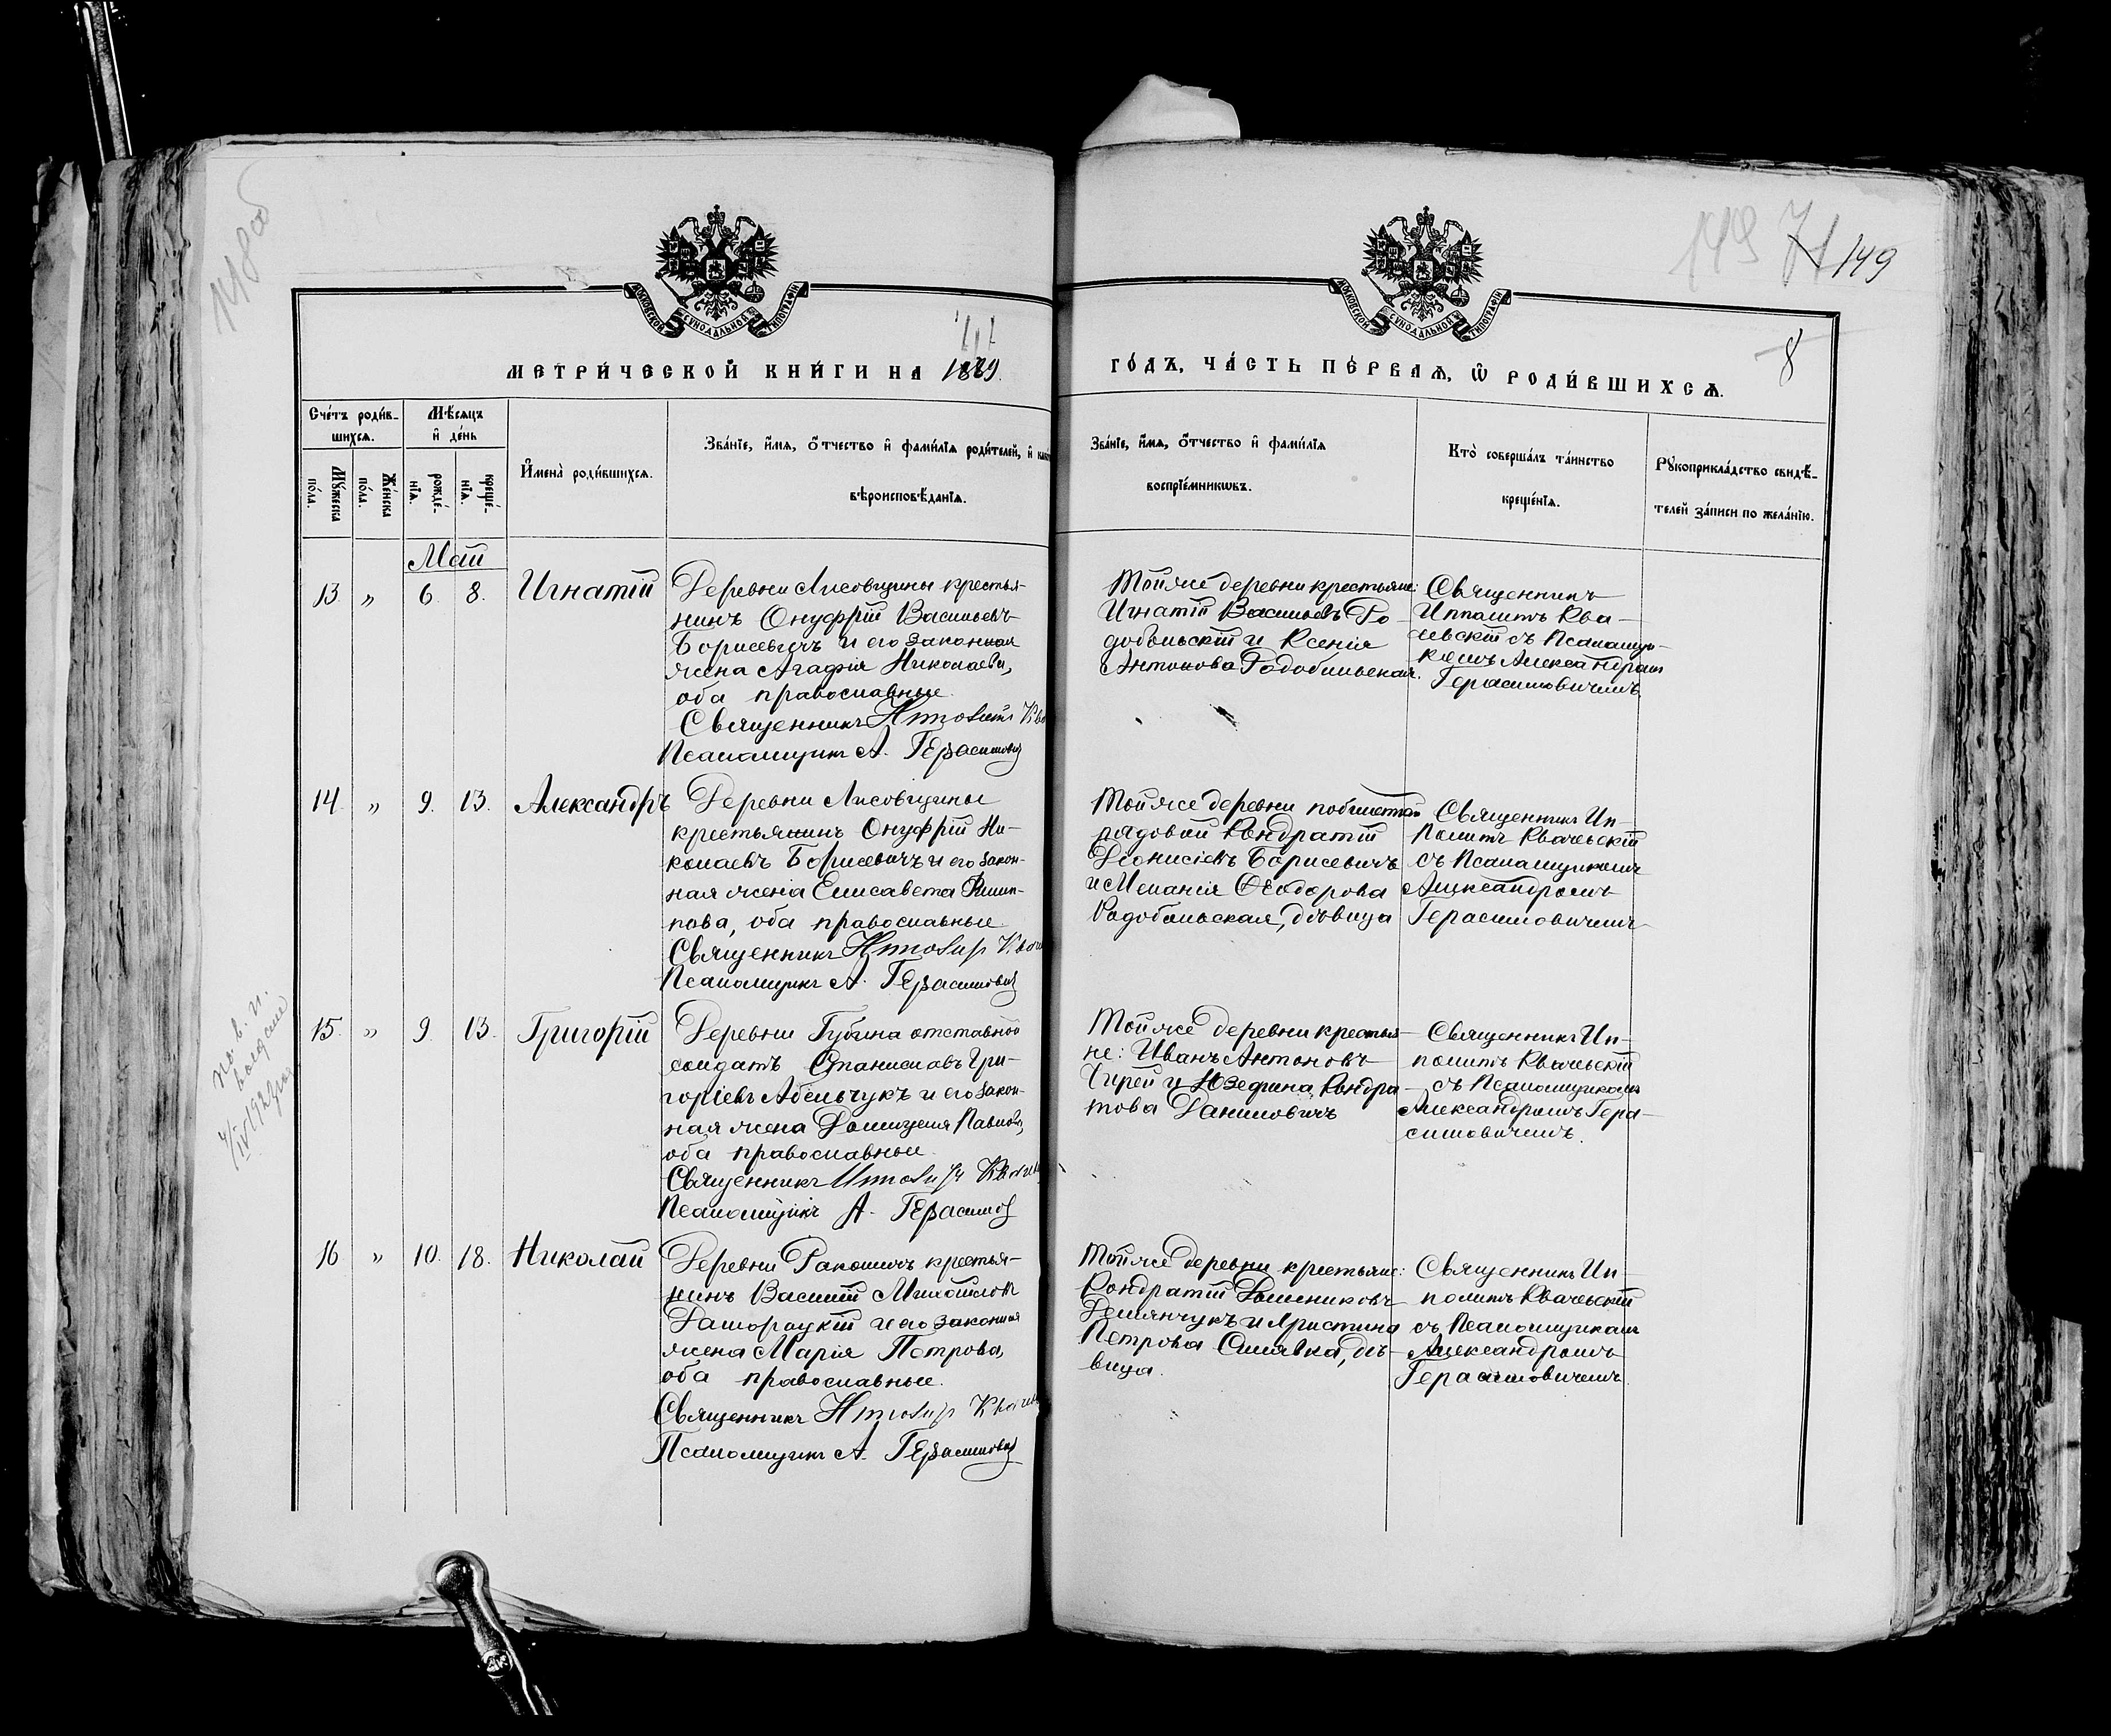 148 об
149 71 149
8
МОСКОВСКОЙ СѴНОДАЛЬНОЙ ТИПОГРАФІИ
МОСКОВСКОЙ СѴНОДАЛЬНОЙ ТИПОГРАФІИ
МЕТРИ́ЧЕСКОЙ КНИ́ГИ НА 1889.
ГО́ДЪ, ЧА́СТЬ ПЕ́РВАѦ, Ѽ РОДИ́ВШИХСѦ.
Сче́тъ роди́в-
шихсѧ.
Мꙋ́жеска
по́ла.
Же́нска
по́ла.
Мѣ́сѧцъ
и҆ де́нь
рожде́-
нїѧ.
креще́-
нїѧ.
И҆мена̀ роди́вшихсѧ.
Зва́нїе, и҆́мѧ, ѻ҆́тчество и҆ фами́лїѧ роди́телей, и҆
вѣроисповѣ́данїѧ.
Зва́нїе, и҆́мѧ, ѻ҆́тчество и҆ фами́лїѧ
воспрїе́мникѡвъ.
Кто̀ соверша́лъ та́инство
креще́нїѧ.
Рꙋкоприкла́дство свидѣ́-
телей за́писи по жела́нїю.
Май
13. „ 6. 8. Игнатій
Деревни Лисовщины крестья-
нинъ Онуфрій Васильевъ
Борисевичъ и его законная
жена Агафія Николаева,
оба православные.
Священникъ Ипполитъ
Псаломщикъ А. Герасимович
Той же деревни крестьяне:
Игнатій Васильевъ Ро-
добольскій и Ксенія
Антонова Родобольская.
Священникъ
Ипполитъ Ква-
чевскій съ Псаломщи-
комъ Александромъ
Герасимовичемъ.
14. „ 9. 13. Александръ
Деревни Лисовщины
крестьянинъ Онуфрій Ни-
колаевъ Борисевичъ и его закон-
ная жена Елисавета Филип-
пова, оба православные
Священникъ Ипполитъ
Псаломщикъ А. Герасимович
Той же деревни
рядовой Кондратій
Діонисіевъ Борисевичъ
и Меланія Ѳеодорова
Радобольская, дѣвица
Священникъ Ип-
политъ Квачевскій
съ Псаломщикомъ
Александромъ
Герасимовичемъ
15. „ 9. 13. Григорій
Деревни Губина отставной
солдатъ Станиславъ Гри-
горіевъ Абельчукъ и его закон-
ная жена Домицеля Павлова,
оба православные.
Священникъ Ипполитъ
Псаломщикъ А. Герасимов
Той же деревни крестья-
не: Иванъ Антоновъ
и Юзефина Кондра-
това Даниловичъ
Священникъ Ип-
политъ Квачевскій
съ Псаломщикомъ
Александромъ Гера-
симовичемъ.
16 „ 10. 18. Николай
Деревни крестья-
нинъ Василій Михайловъ
и его законная
жена Марія Петрова,
оба православные.
Священникъ Ипполитъ
Псаломщикъ А. Герасимович
Той же деревни крестьяне:
Кондратій
Демянчукъ и Христина
Петрова Сшивка, дѣ-
вица.
Священникъ Ип-
политъ Квачевскій
съ Псаломщикомъ
Александромъ
Герасимовичемъ